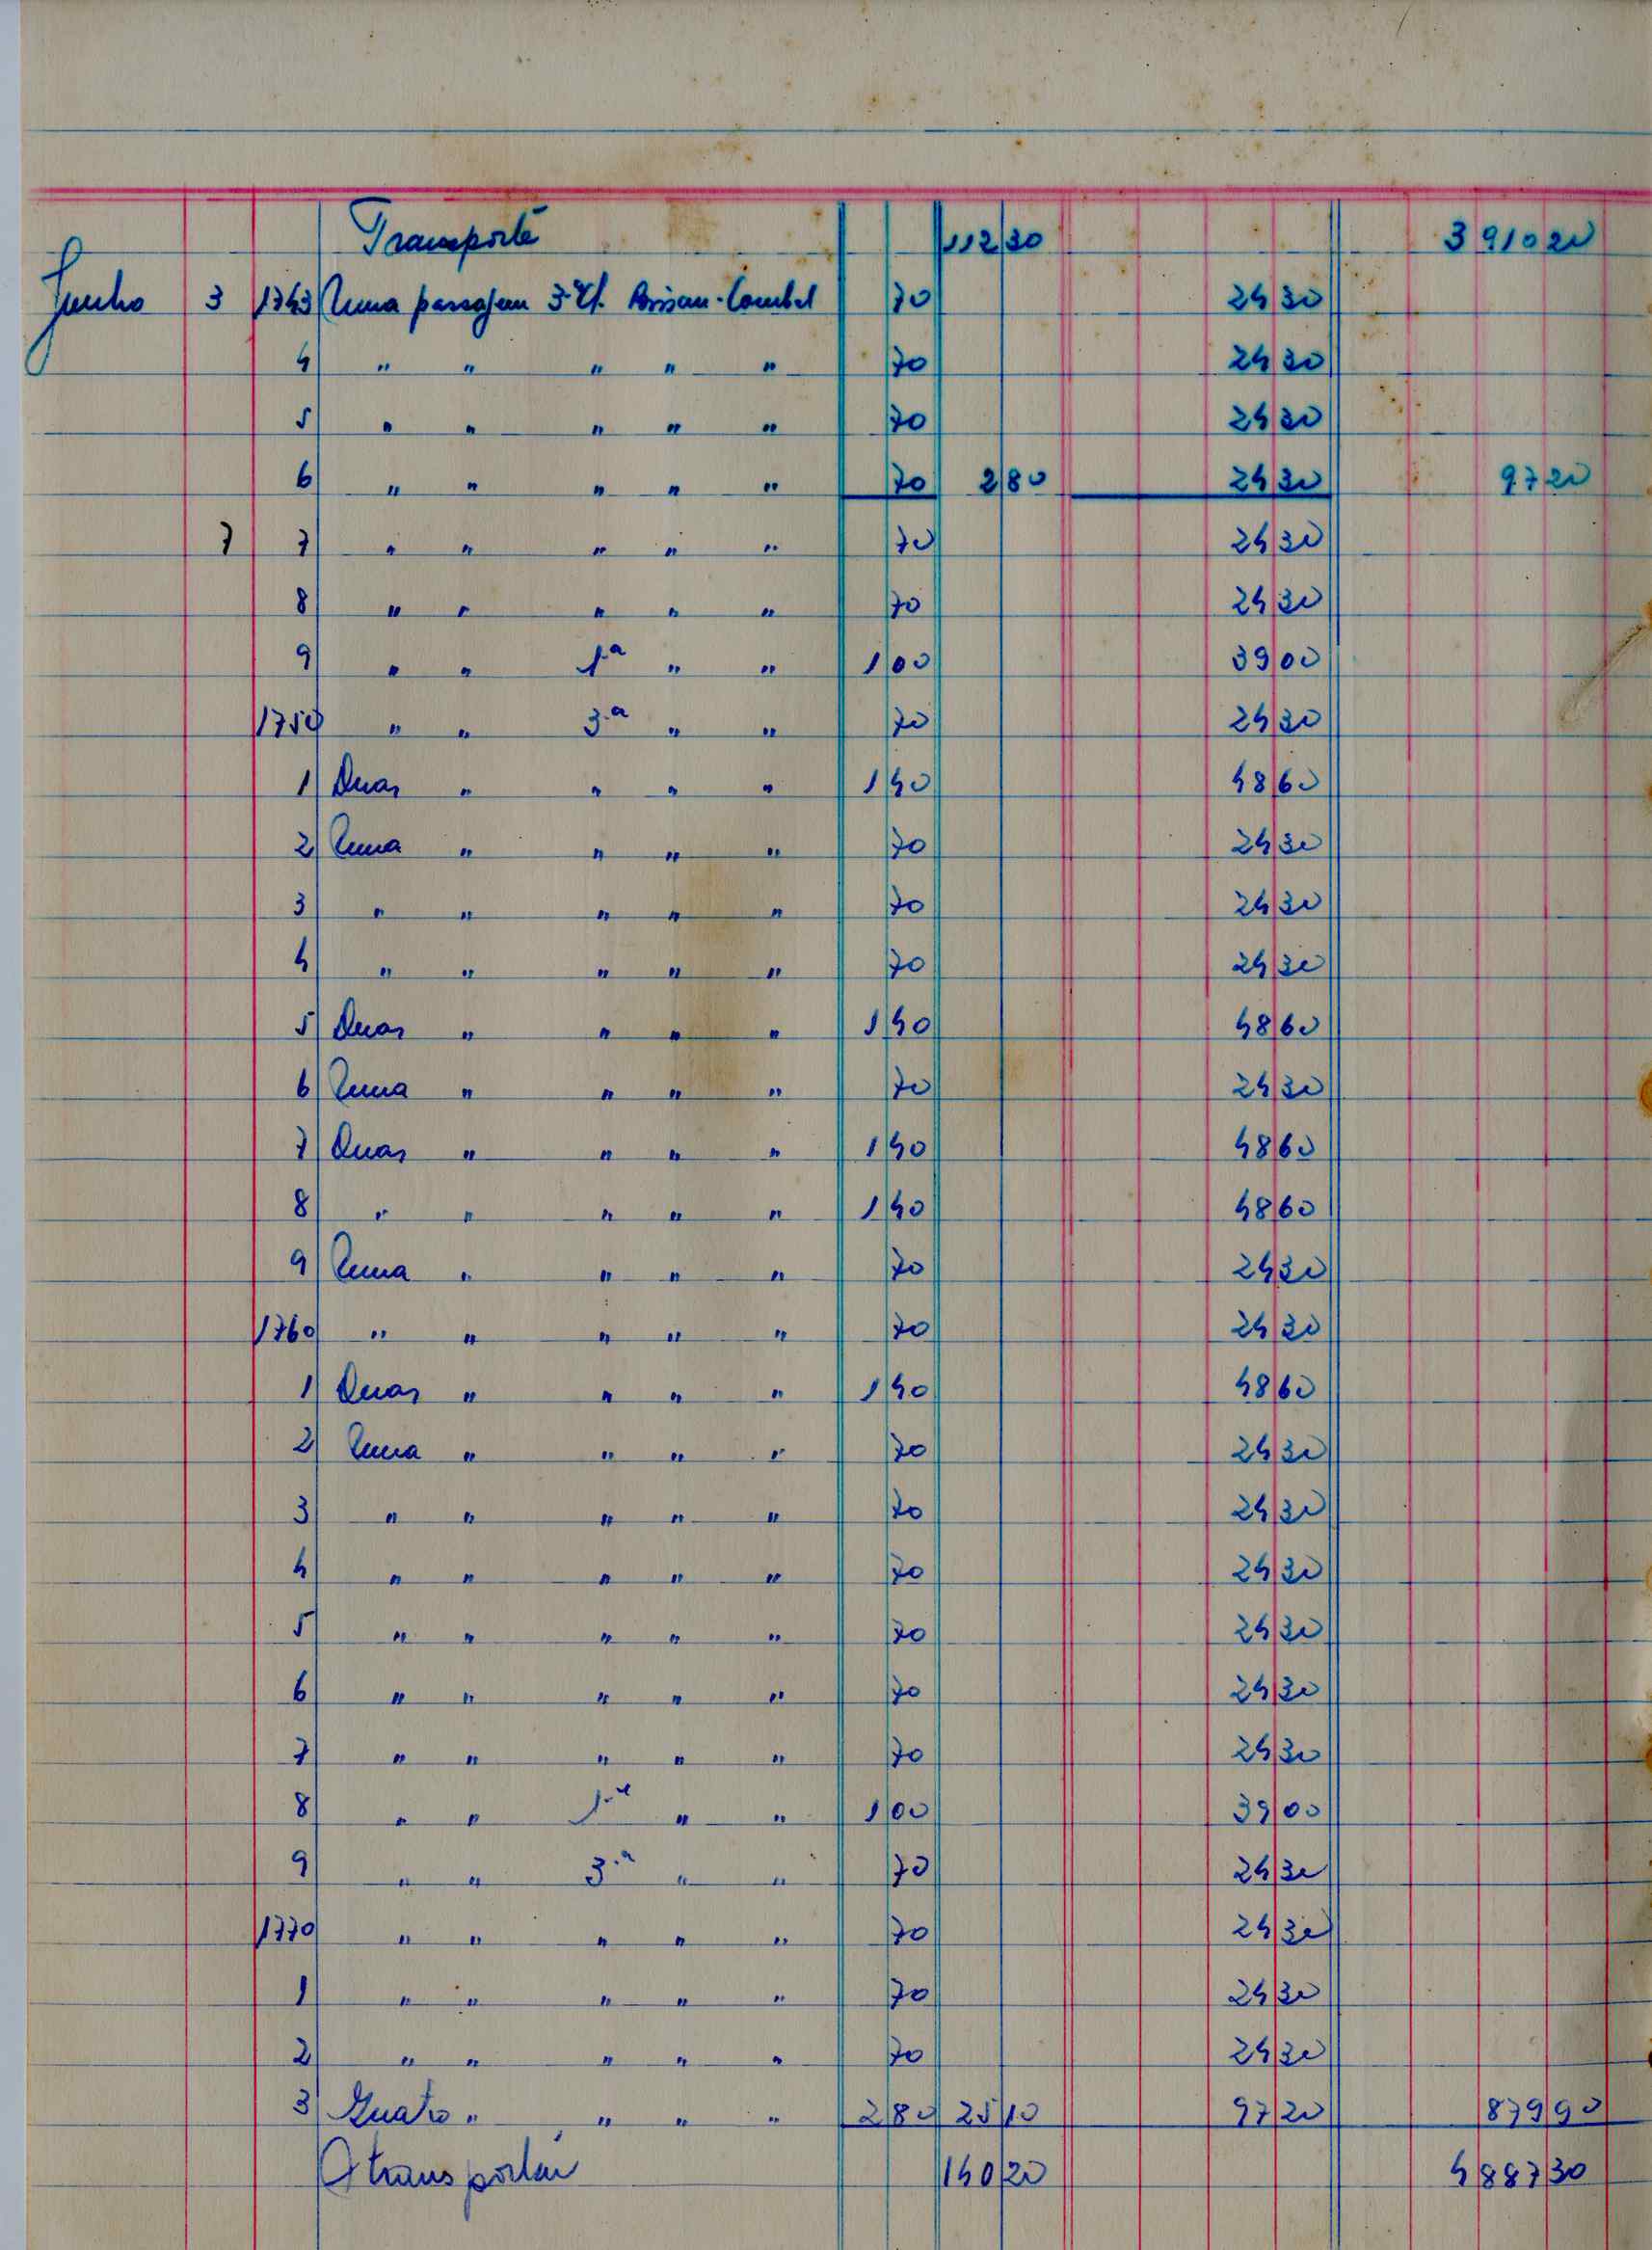 Transporte 112 30 3 910 20
Junho 3 1743 Uma passajem 3.ª cl. Bissau-Combel 70 24 30
4 " " " " " 70 24 30
5 " " " " " 70 24 30
6 " " " " " 70 2 80 24 30 97 20
7 7 " " " " " 70 24 30
8 " " " " " 70 24 30
9 " " 1.ª " " 1 00 39 00
1750 " " 3.ª " " 70 24 30
1 Duas " " " " 1 40 48 60
2 Uma " " " " 70 24 30
3 " " " " " 70 24 30
4 " " " " " 70 24 30
5 Duas " " " " 1 40 48 60
6 Uma " " " " 70 24 30
7 Duas " " " " 1 40 48 60
8 " " " " " 1 40 48 60
9 Uma " " " " 70 24 30
1760 " " " " " 70 24 30
1 Duas " " " " 1 40 48 60
2 Uma " " " " 70 24 30
3 " " " " " 70 24 30
4 " " " " " 70 24 30
5 " " " " " 70 24 30
6 " " " " " 70 24 30
7 " " " " " 70 24 30
8 " " 1.ª " " 1 00 39 00
9 " " 3.ª " " 70 24 30
1770 " " " " " 70 24 30
1 " " " " " 70 24 30
2 " " " " " 70 24 30
3 Quatro " " " " 2 80 25 10 97 20 879 90
A transportar 140 20 4 887 30